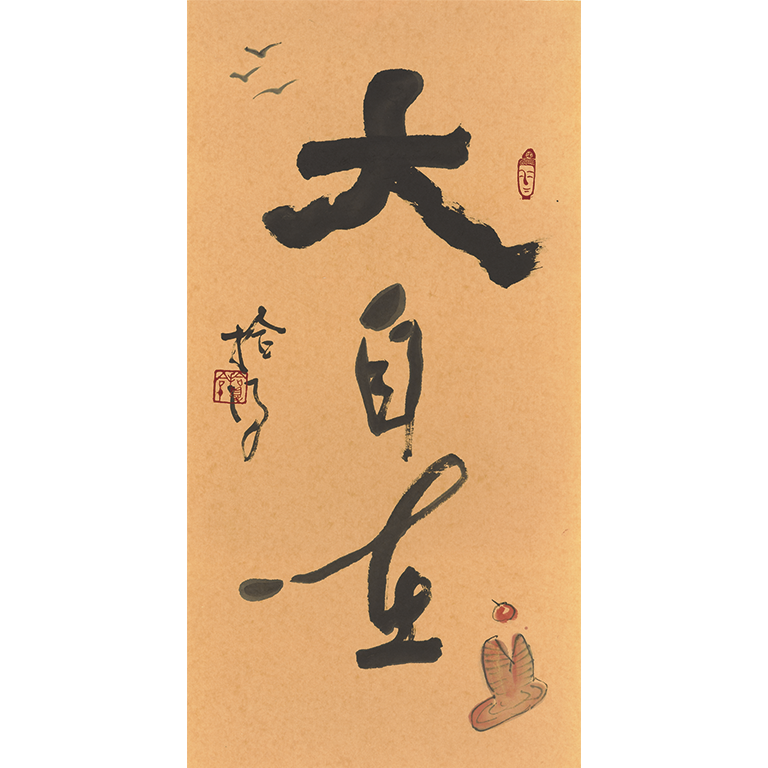 大自在
拾得